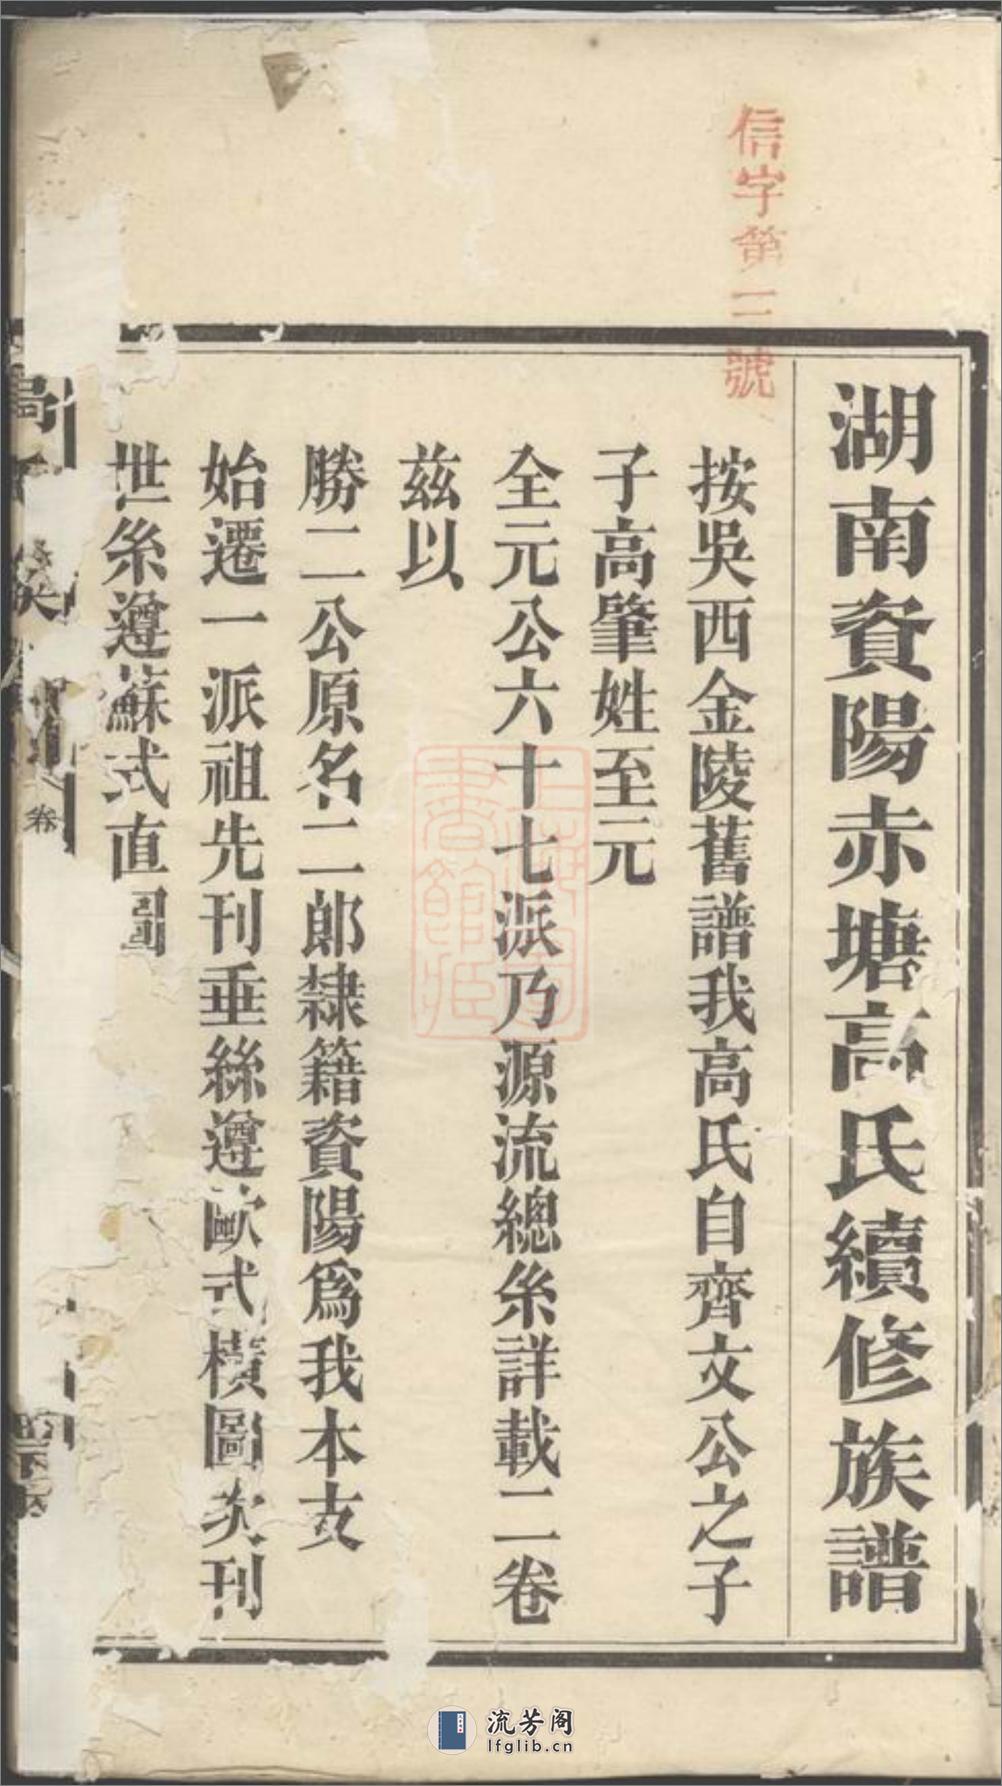 湖南資陽赤塘高氏續修族譜
信字第三號
按吳西金陵舊譜我高氏自齊文公之子
子高肇姓至元
全元公六十七派乃源流總系詳載二卷
茲以
勝二公原名二郎隸籍資陽為我本支
始遷一派祖先刊垂絲遵歐式橫圖次刊
世系遵蘇式直圖
卷
上海圖書館藏
流芳阁
lfglib.cn